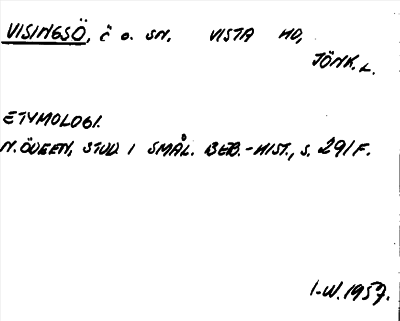 VISINGSÖ, ö o. SN, VISTA HD,
JÖNK. L.
ETYMOLOGI.
N. ÖDEEN, STUD. I SMÅL. BEB.-HIST., S. 291 F.
I-W. 1957.